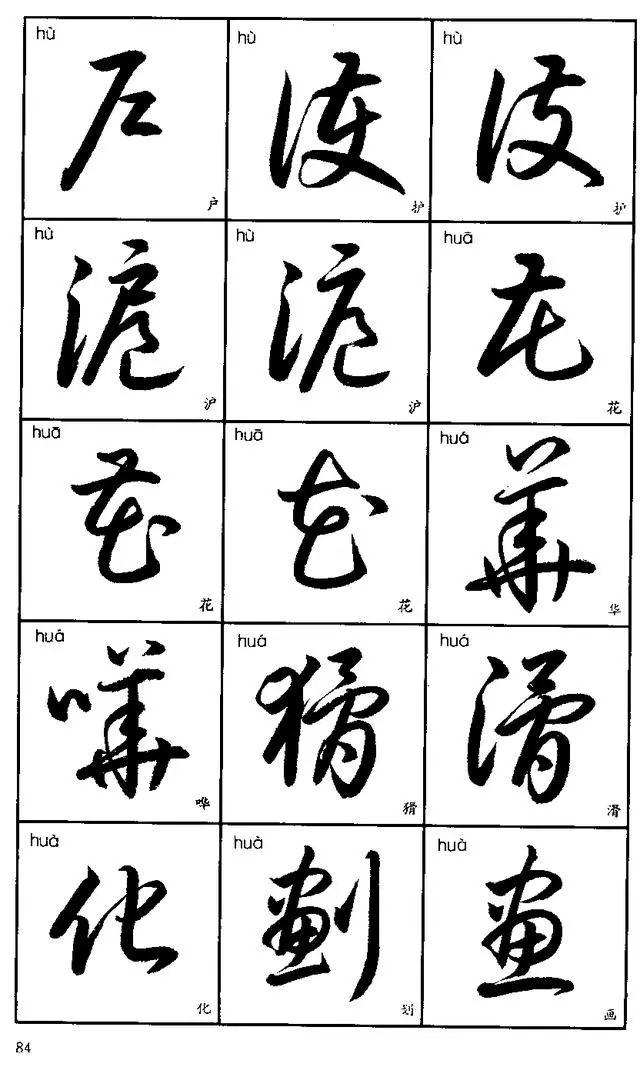 hù hù hù
户 護 護
户 护 护
hù hù huā
滬 滬 花
沪 沪 花
huā huā huá
花 花 華
花 花 华
huá huá huá
嘩 猾 滑
哗 猾 滑
huà huà huà
化 劃 畫
化 划 画
84